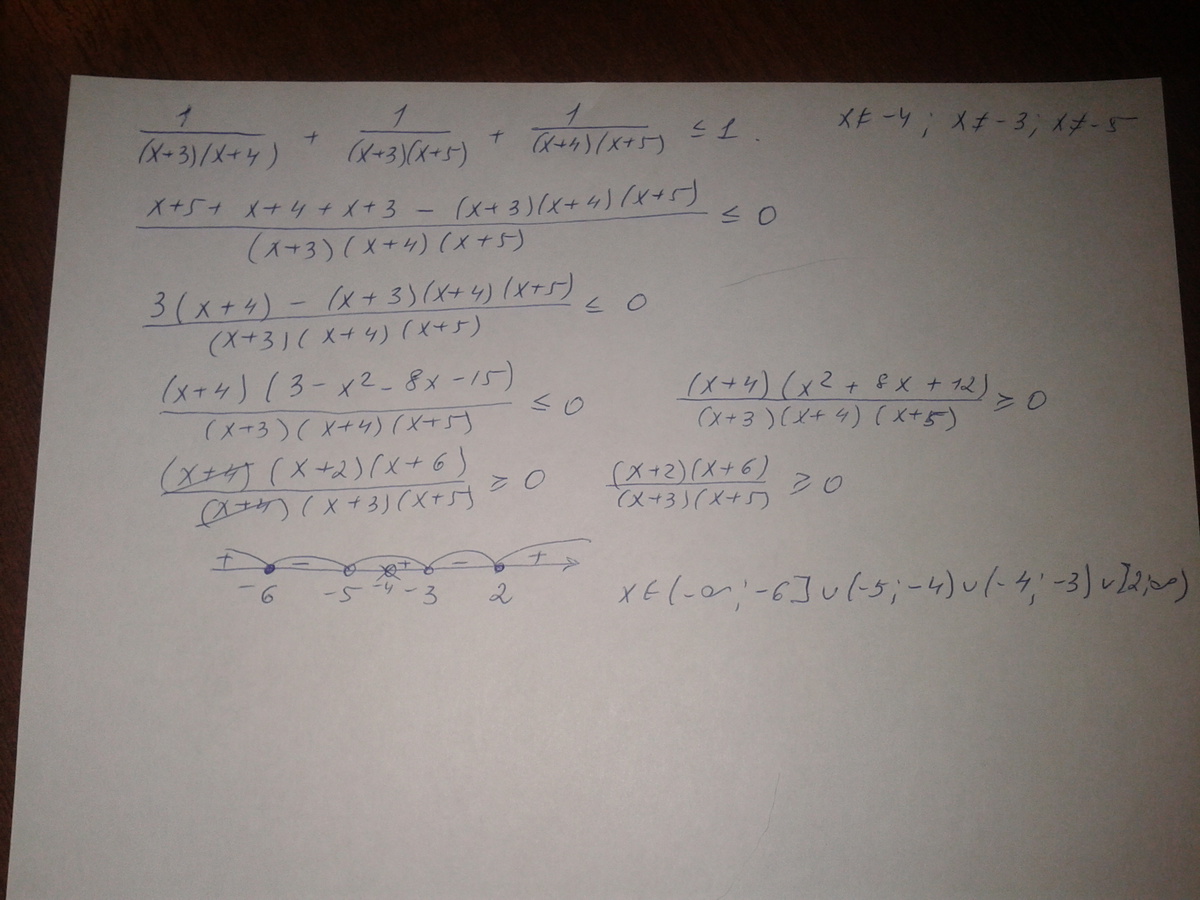 1/((x+3)(x+4)) + 1/((x+3)(x+5)) + 1/((x+4)(x+5)) ≤ 1. x≠-4; x≠-3; x≠-5
(x+5+x+4+x+3-(x+3)(x+4)(x+5))/((x+3)(x+4)(x+5)) ≤ 0
(3(x+4)-(x+3)(x+4)(x+5))/((x+3)(x+4)(x+5)) ≤ 0
((x+4)(3-x²-8x-15))/((x+3)(x+4)(x+5)) ≤ 0 ((x+4)(x²+8x+12))/((x+3)(x+4)(x+5)) ≥ 0
((x+4)(x+2)(x+6))/((x+4)(x+3)(x+5)) ≥ 0 ((x+2)(x+6))/((x+3)(x+5)) ≥ 0
+ - + - +
-6 -5 -4 -3 2
x∈(-∞;-6]∪(-5;-4)∪(-4;-3)∪]2;∞)